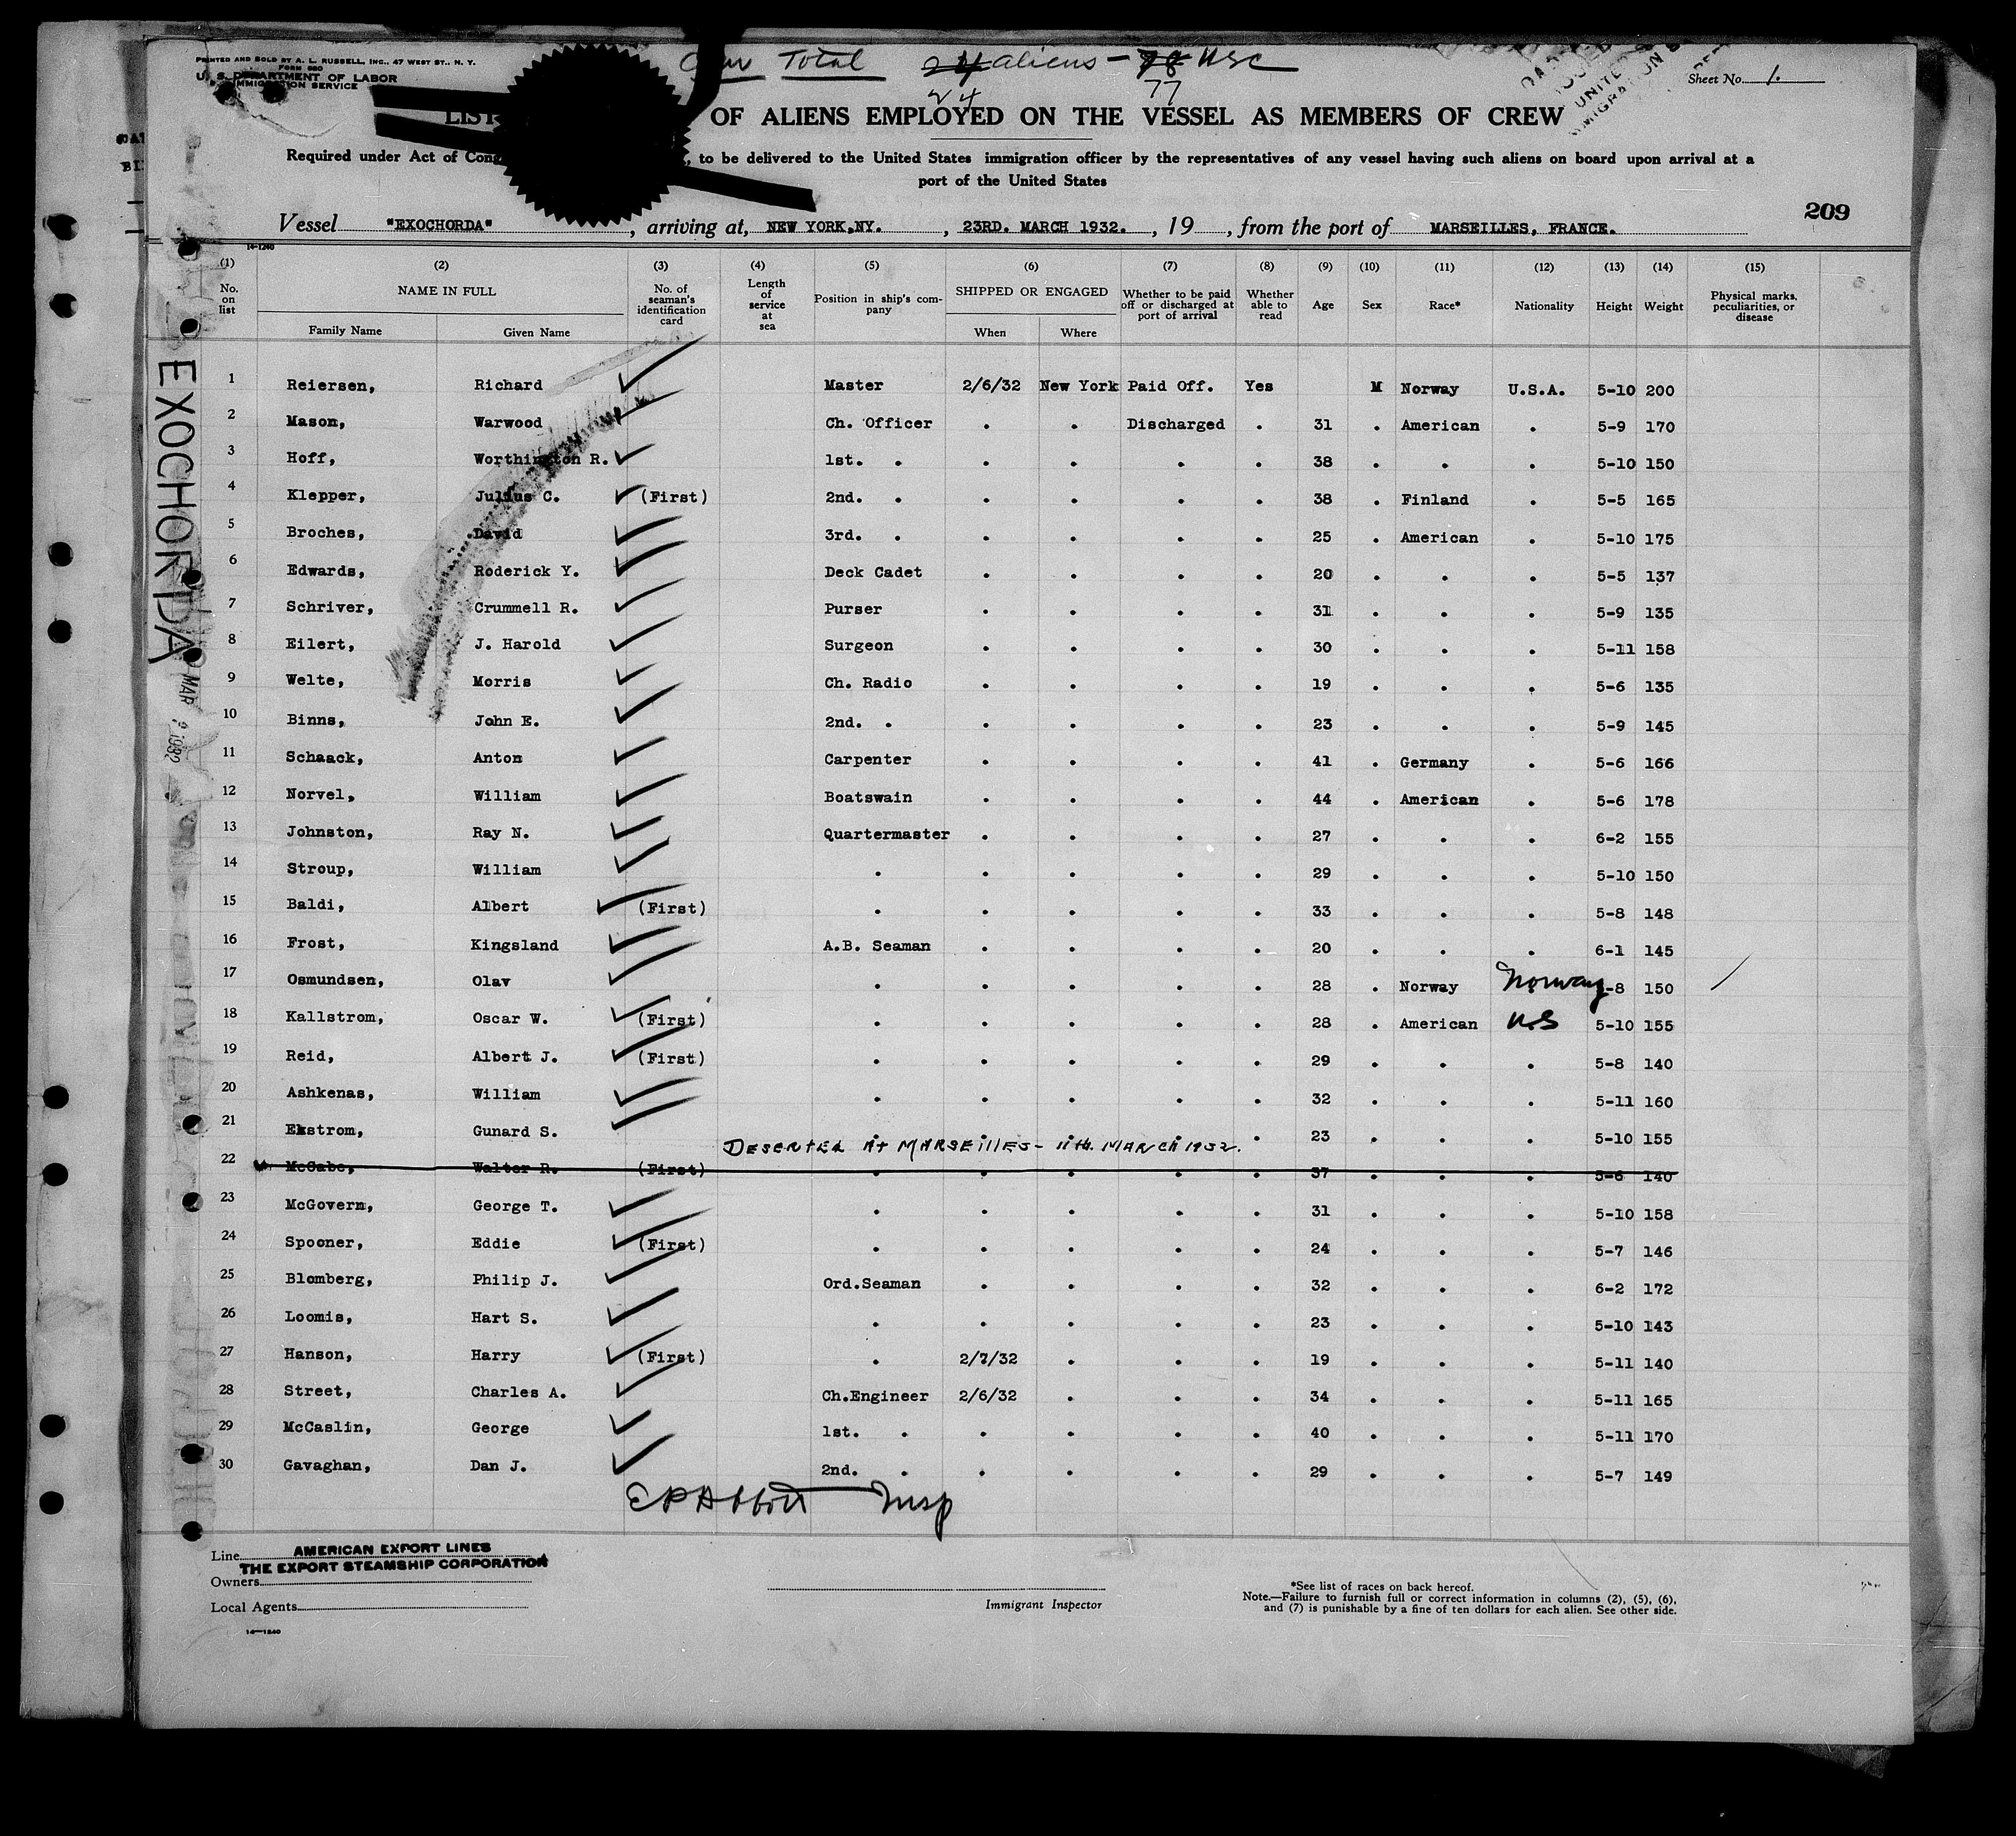 PRINTED AND SOLD BY A. L. RUSSELL, INC., 47 WEST ST., N. Y.
FORM 680
U. S. DEPARTMENT OF LABOR
IMMIGRATION SERVICE
Crew Total 24 aliens - 78 USC
24 77
Sheet No. 1.
LIST OF ALIENS EMPLOYED ON THE VESSEL AS MEMBERS OF CREW
Required under Act of Cong , to be delivered to the United States immigration officer by the representatives of any vessel having such aliens on board upon arrival at a
port of the United States
209
Vessel "EXOCHORDA" , arriving at, NEW YORK,NY. , 23RD. MARCH 1932. , 19 , from the port of MARSEILLES, FRANCE.
14-1240
(1) (2) (3) (4) (5) (6) (7) (8) (9) (10) (11) (12) (13) (14) (15)
No. on list NAME IN FULL Family Name Given Name No. of seaman's identification card Length of service at sea Position in ship's company SHIPPED OR ENGAGED When Where Whether to be paid off or discharged at port of arrival Whether able to read Age Sex Race* Nationality Height Weight Physical marks, peculiarities, or disease
EXOCHORDA
1 Reiersen, Richard Master 2/6/32 New York Paid Off. Yes M Norway U.S.A. 5-10 200
2 Mason, Warwood Ch. Officer . . Discharged . 31 . American . 5-9 170
3 Hoff, Worthington R. 1st. . . . . . 38 . . . 5-10 150
4 Klepper, Julius C. (First) 2nd. . . . . . 38 . Finland . 5-5 165
5 Broches, David 3rd. . . . . . 25 . American . 5-10 175
6 Edwards, Roderick Y. Deck Cadet . . . . 20 . . . 5-5 137
7 Schriver, Crummell R. Purser . . . . 31 . . . 5-9 135
8 Eilert, J. Harold Surgeon . . . . 30 . . . 5-11 158
9 Welte, Morris Ch. Radio . . . . 19 . . . 5-6 135
10 Binns, John E. 2nd. . . . . . 23 . . . 5-9 145
11 Schaack, Anton Carpenter . . . . 41 . Germany . 5-6 166
12 Norvel, William Boatswain . . . . 44 . American . 5-6 178
13 Johnston, Ray N. Quartermaster . . . . 27 . . . 6-2 155
14 Stroup, William . . . . . 29 . . . 5-10 150
15 Baldi, Albert (First) . . . . . 33 . . . 5-8 148
16 Frost, Kingsland A.B. Seaman . . . . 20 . . . 6-1 145
17 Osmundsen, Olav . . . . . 28 . Norway Norway -8 150
18 Kallstrom, Oscar W. (First) . . . . . 28 . American U.S 5-10 155
19 Reid, Albert J. (First) . . . . . 29 . . . 5-8 140
20 Ashkenas, William . . . . . 32 . . . 5-11 160
21 Ekstrom, Gunard S. . . . . . 23 . . . 5-10 155
DESERTED AT MARSEILLES - 11th. MARCH 1932.
22 McCabe, Walter R. (First) . . . . . 37 . . . 5-6 140
23 McGovern, George T. . . . . . 31 . . . 5-10 158
24 Spooner, Eddie (First) . . . . . 24 . . . 5-7 146
25 Blomberg, Philip J. Ord.Seaman . . . . 32 . . . 6-2 172
26 Loomis, Hart S. . . . . . 23 . . . 5-10 143
27 Hanson, Harry (First) . 2/7/32 . . . 19 . . . 5-11 140
28 Street, Charles A. Ch.Engineer 2/6/32 . . . 34 . . . 5-11 165
29 McCaslin, George 1st. . . . . . 40 . . . 5-11 170
30 Gavaghan, Dan J. 2nd. . . . . . 29 . . . 5-7 149
E P Abbott Insp
Line AMERICAN EXPORT LINES
THE EXPORT STEAMSHIP CORPORATION
Owners
Local Agents
Immigrant Inspector
*See list of races on back hereof.
Note.—Failure to furnish full or correct information in columns (2), (5), (6),
and (7) is punishable by a fine of ten dollars for each alien. See other side.
14—1240